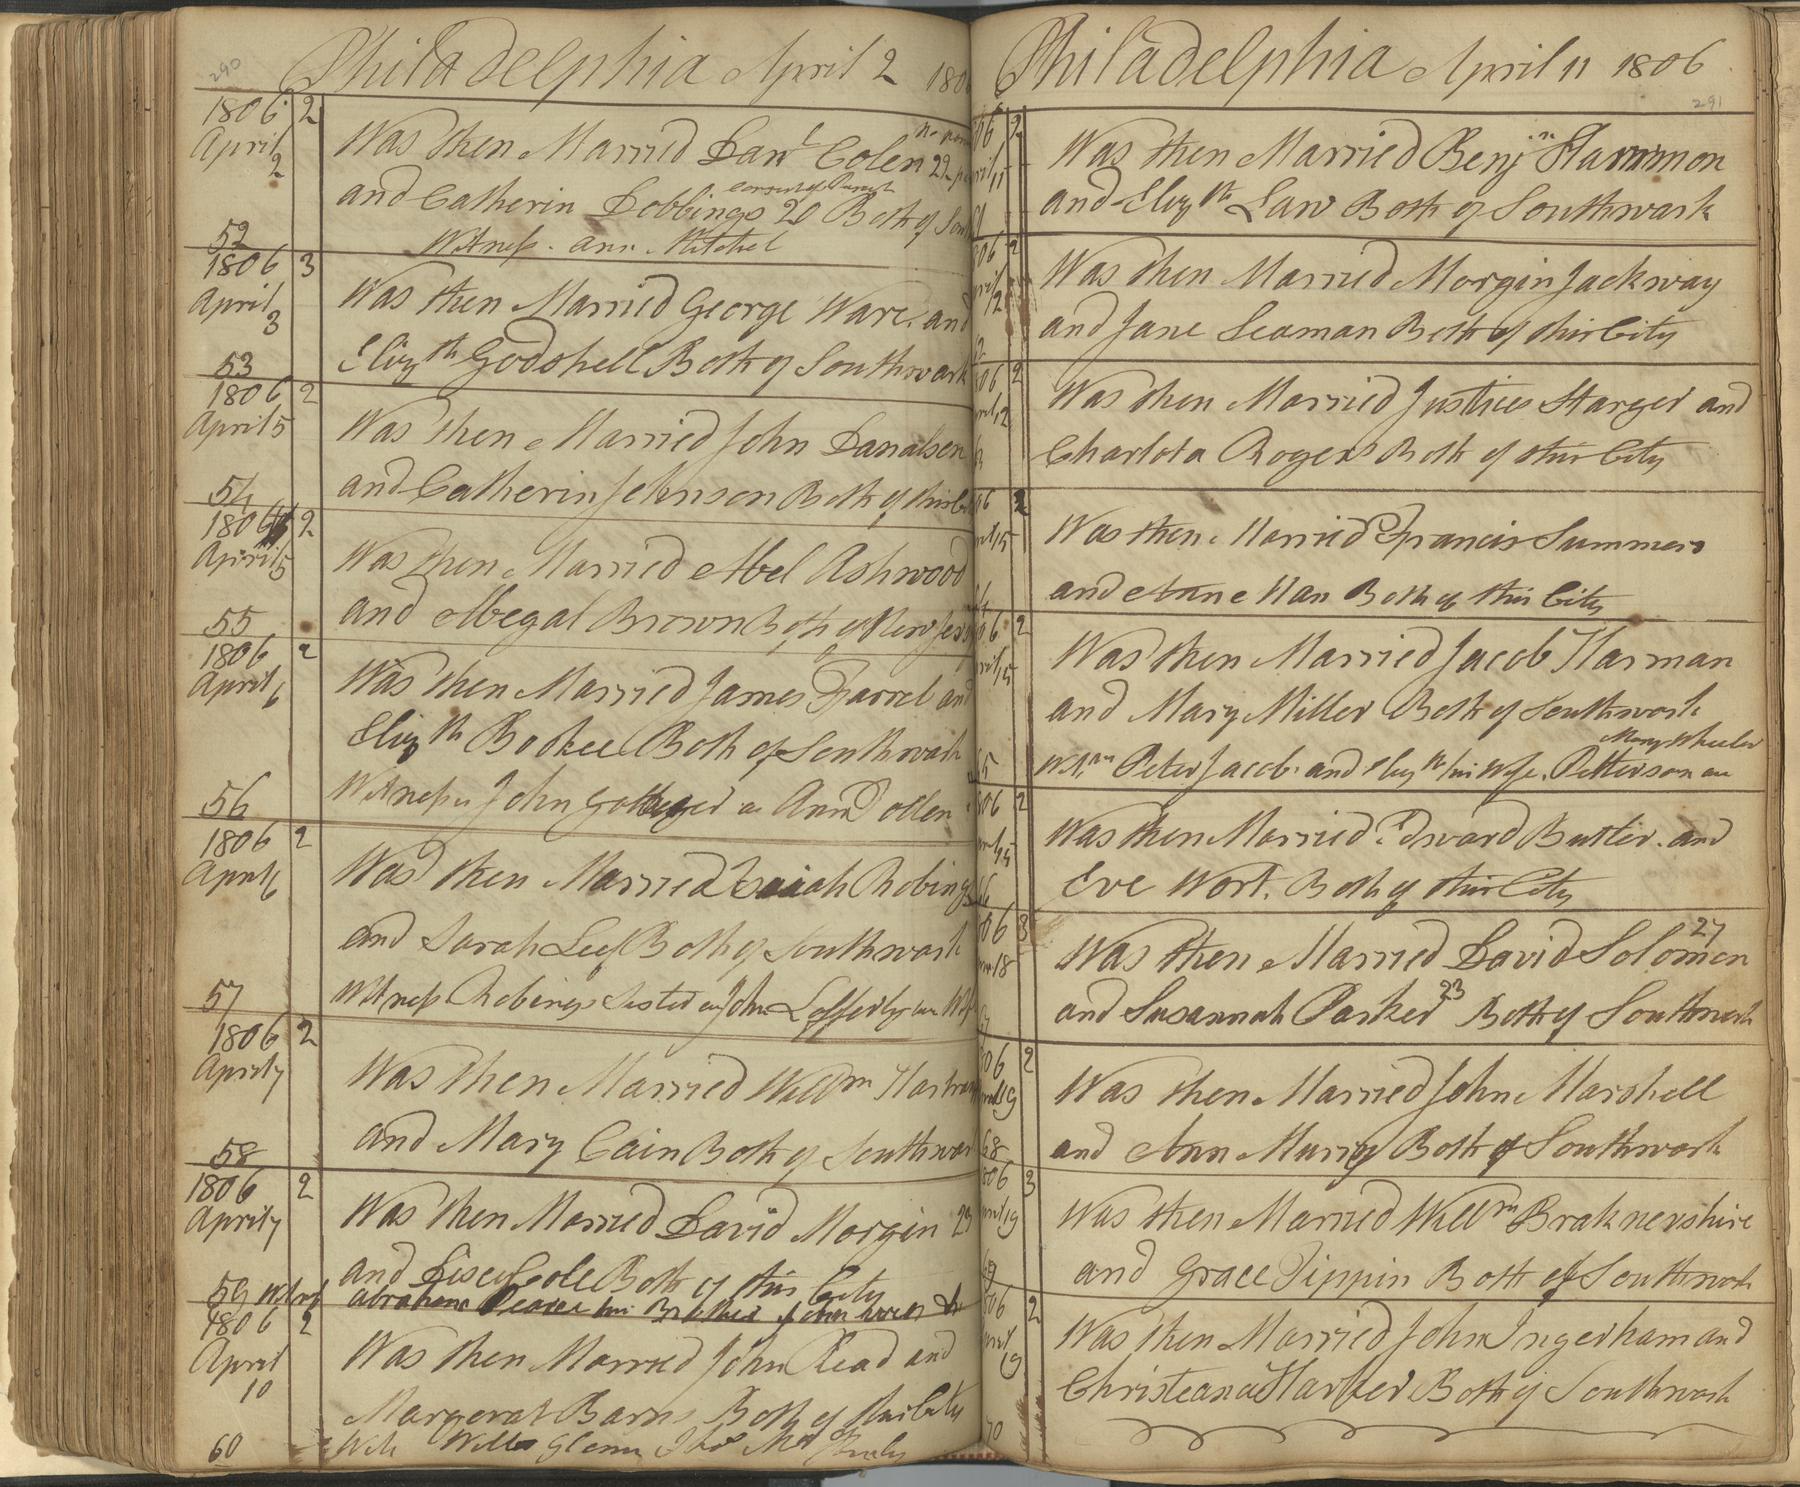 290
Philadelphia April 2 1806
1806 2
April 2
Was then Married Danl Colen 22
and Catherin Dobbings 20 Both of
consent of Parents
52
Witness. Ann Mitchel
1806 3
April 3
Was then Married George Ware. and
53
Elizth Godshell Both of Southwark
1806 2
April 5
Was then Married John Danalsen
54
and Catherin Johnson Both of this
1806 2
April 5
Was then Married Abel Ashwood
55
and Abegal Brown Both of New Jersy
1806 2
April 6
Was then Married James Farrel and
Elizth Bookee Both of Southwark
56
Witnesses John as Ann
1806 2
April 6
Was then Married Isaiah Robings
and Sarah Leef Both of Southwark
57
Witness Robings Sister an John Lefferly an Wife
1806 2
April 7
Was then Married Willm
58
and Mary Cain Both of Southwar
1806 2
April 7
Was then Married David Morgin 29
and Cole Both of this City
59 Witness
Abraham his Brother John
1806 2
April 10
Was then Married John Read and
Margerat Barns Both of this City
60
Wit Willm Glenn Thos
Philadelphia April 11 1806
291
06 2
11
Was then Married Benjin Hammon
and Elizth Law Both of Southwark
61
06 2
12
Was then Married Morgin Jackway
and Jane Leaman Both of this City
06 2
12
Was then Married Justices Harger and
Charlota Rogers Both of this City
06 2
15
Was then Married Francis Summers
and Anne Han Both of this City
06 2
15
Was then Married Jacob Harman
and Mary Miller Both of Southwark
Mary Wheeler
65
Witnn Peter Jacob and Elizth his Wife. Petterson an
806 2
Was then Married Edward Butler. and
66
Eve Wort. Both of this City
06 3
18
Was then Married David Solomon 27
and Susannah Parker 23 Both of Southwark
806 2
19
Was then Married John Marshell
68
and Ann Murry Both of Southwark
806 3
19
Was then Married Willm Braknershire
69
and Grace Tippin Both of Southwark
806 2
19
Was then Married John Ingerham and
Christeana Harper Both of Southwark
70